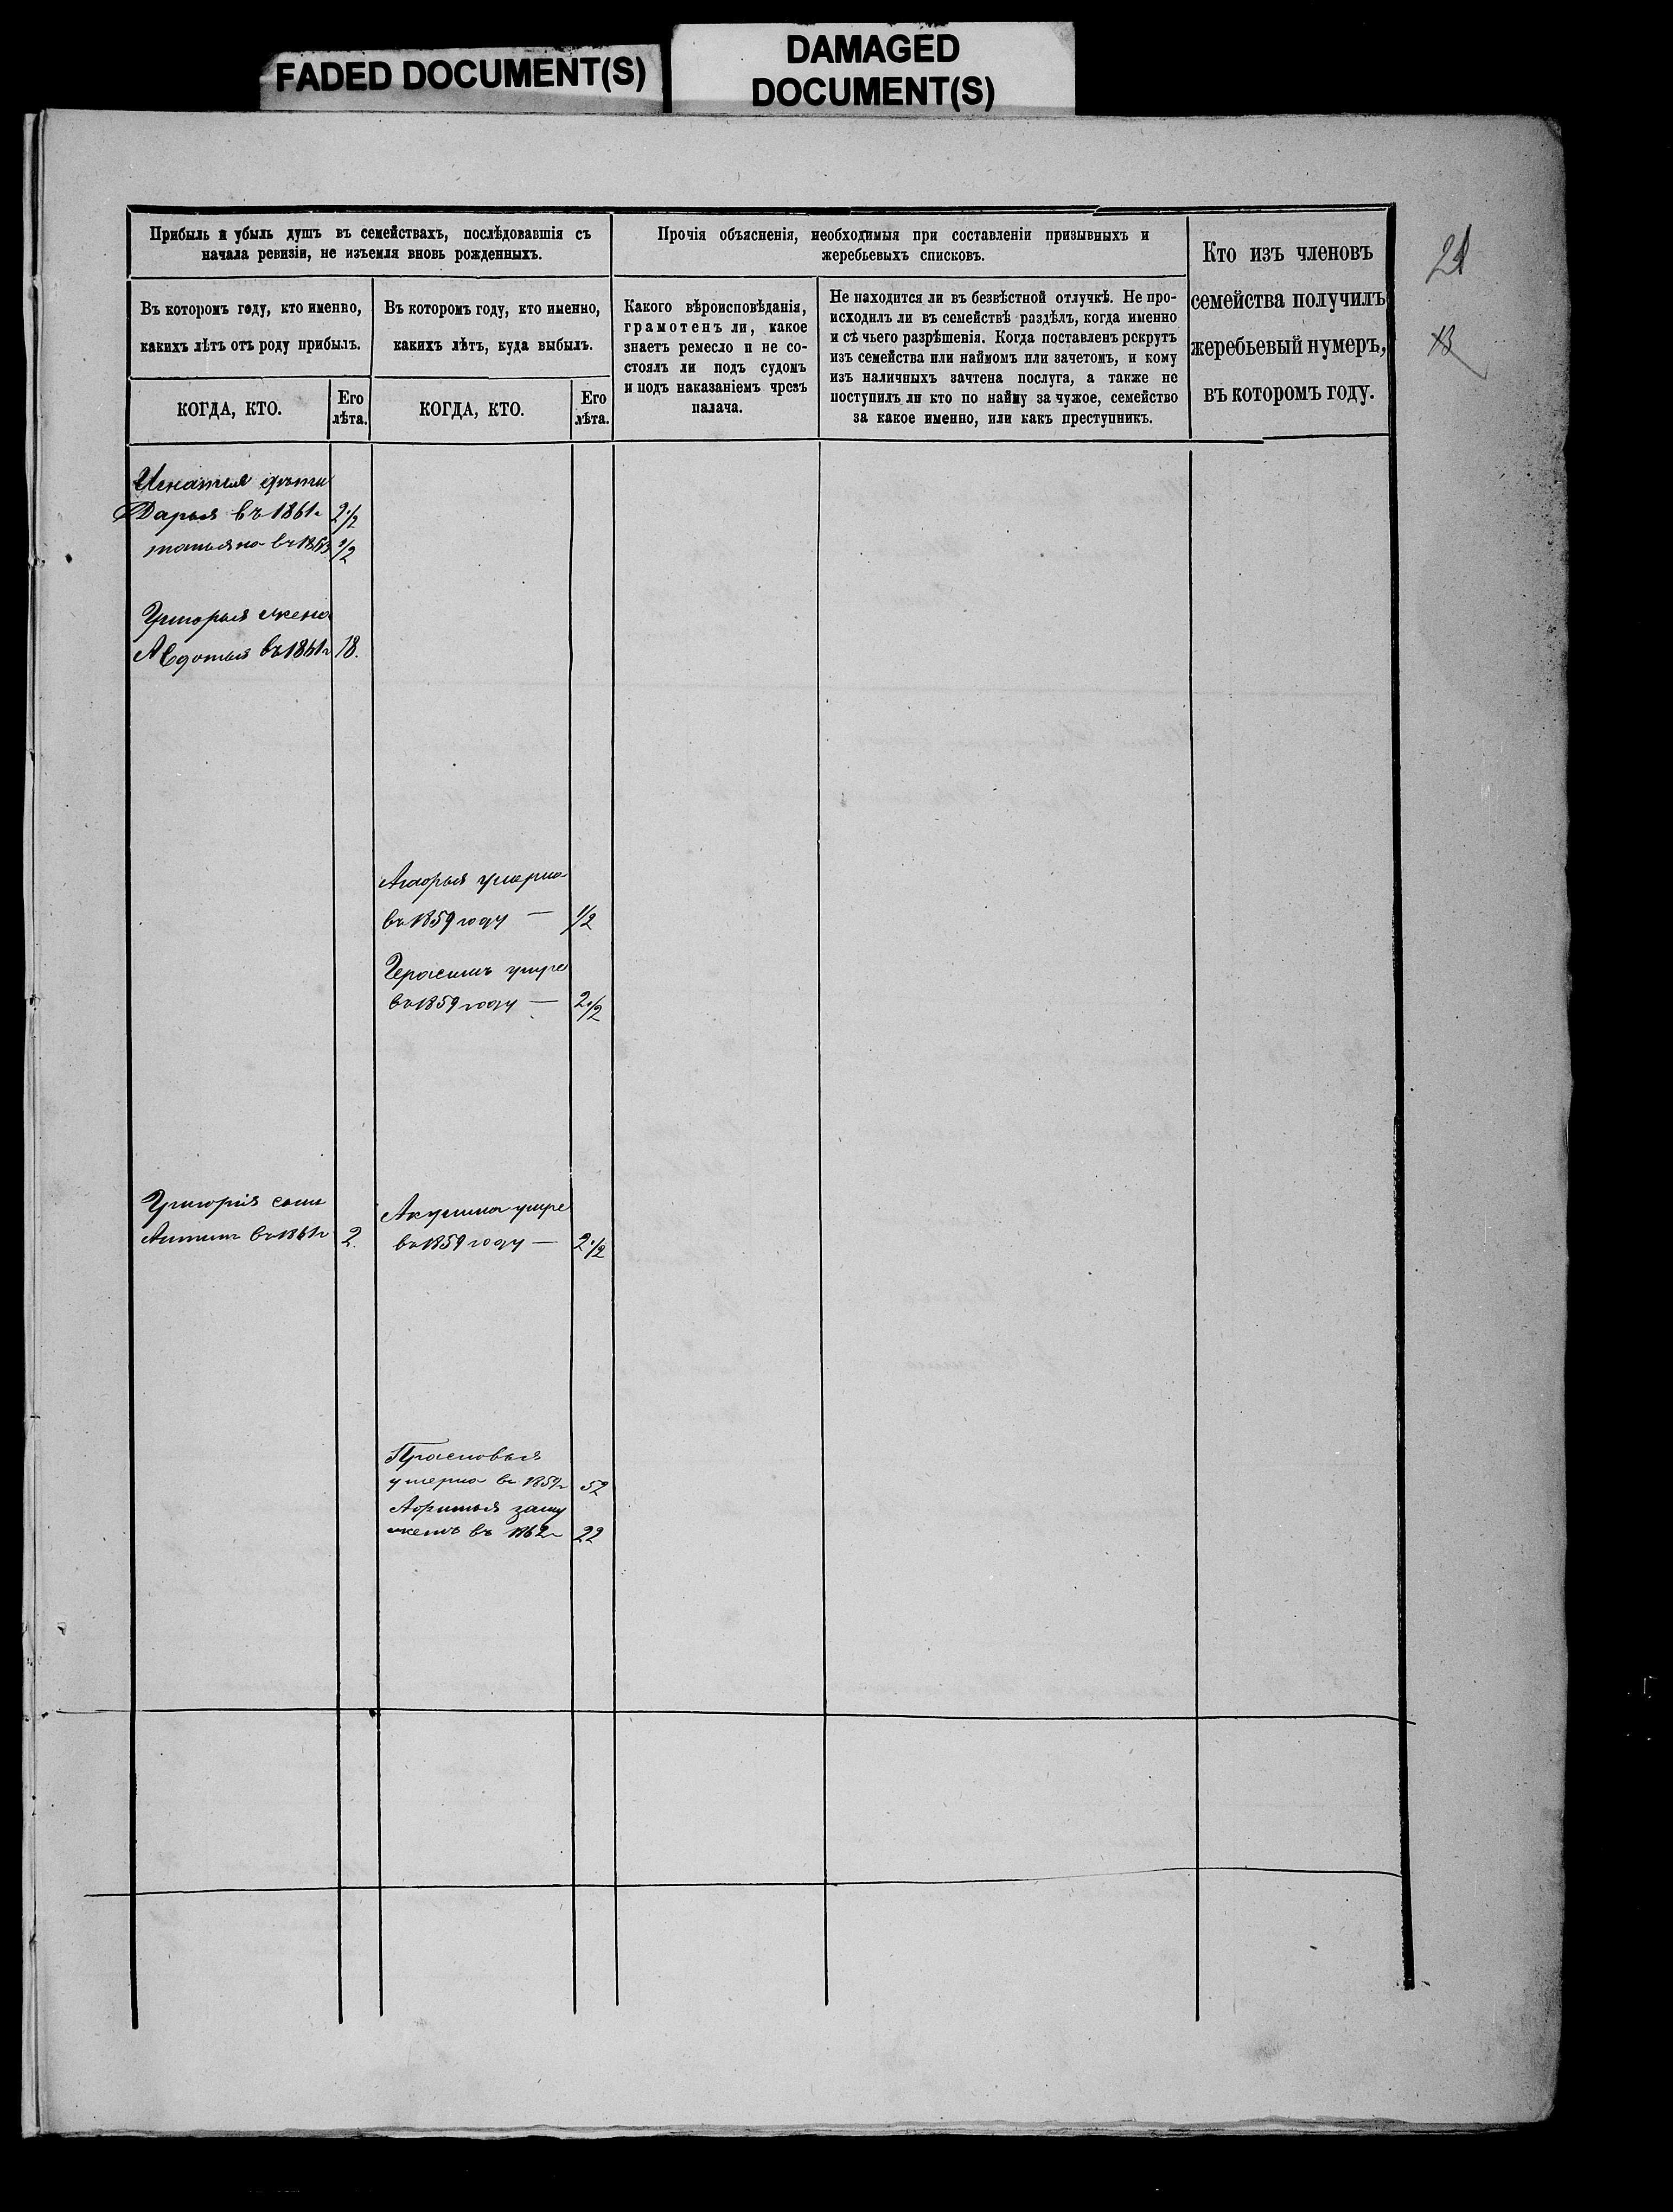 FADED DOCUMENT(S)
DAMAGED
DOCUMENT(S)
21
13
Прибыль и убыль душъ въ семействахъ, послѣдовавшія съ
начала ревизіи, не изъемля вновь рожденныхъ.
Прочія объясненія, необходимыя при составленіи призывныхъ и
жеребьевыхъ списковъ.
Кто изъ членовъ
семейства получилъ
жеребьевый нумеръ,
въ которомъ году.
Въ которомъ году, кто именно,
какихъ лѣтъ отъ роду прибылъ.
Въ которомъ году, кто именно,
какихъ лѣтъ, куда выбылъ.
Какого вѣроисповѣданія,
грамотенъ ли, какое
знаетъ ремесло и не со-
стоялъ ли подъ судомъ
и подъ наказаніемъ чрезъ
палача.
Не находится ли въ безвѣстной отлучкѣ. Не про-
исходилъ ли въ семействѣ раздѣлъ, когда именно
и съ чьего разрѣшенія. Когда поставленъ рекрутъ
изъ семейства или наймомъ или зачетомъ, и кому
изъ наличныхъ зачтена послуга, а также не
поступилъ ли кто по найму за чужое, семейство
за какое именно, или какъ преступникъ.
КОГДА, КТО.
Его
лѣта.
КОГДА, КТО.
Его
лѣта.
Игнатия дѣти
Дарья въ 1861г 2 1/2
татьяна въ 1/2
Григорья жена
Авдотья въ 1861г 18.
умерла
въ 1859 году — 1/2
Герасимъ умре
въ 1859 году — 2 1/2
Григорія сынъ
Антипъ въ 1861г 2.
Акулина умре
въ 1859 году — 2 1/2
Прасковья
умерла въ 1859г 52
заму
жемъ въ 1862г 22